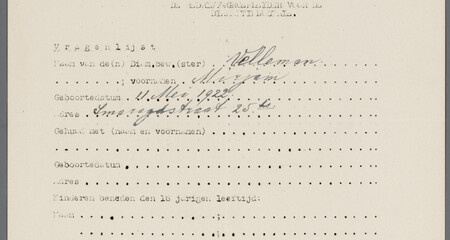 Vragenlijst
Naam van de(n) Diam.bew.(ster) Velleman
; voornamen Mirjam
Geboortedatum 4 Mei 1922
Adres Smaragdstraat 25
Gehuwd met (naam en voornamen)
Geboortedatum
Adres
Kinderen beneden den 18 jarigen leeftijd:
Naam ;
;